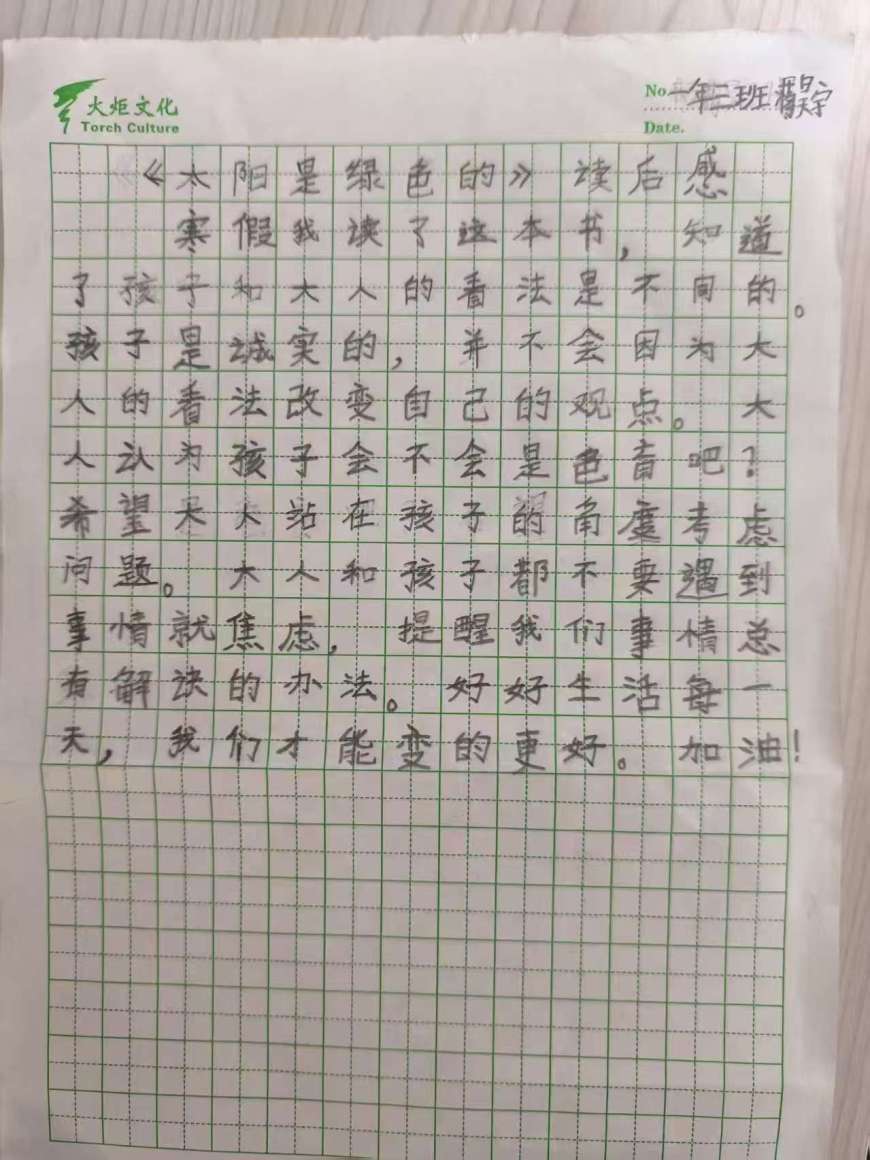 火炬文化
Torch Culture
No. 一年三班 昊宇
Date.
《太阳是绿色的》读后感
寒假我读了这本书，知道
了孩子和大人的看法是不同的。
孩子是诚实的，并不会因为大
人的看法改变自己的观点。大
人认为孩子会不会是色盲吧？
希望大人站在孩子的角度考虑
问题。大人和孩子都不要遇到
事情就焦虑，提醒我们事情总
有解诀的办法。好好生活每一
天，我们才能变的更好。加油！